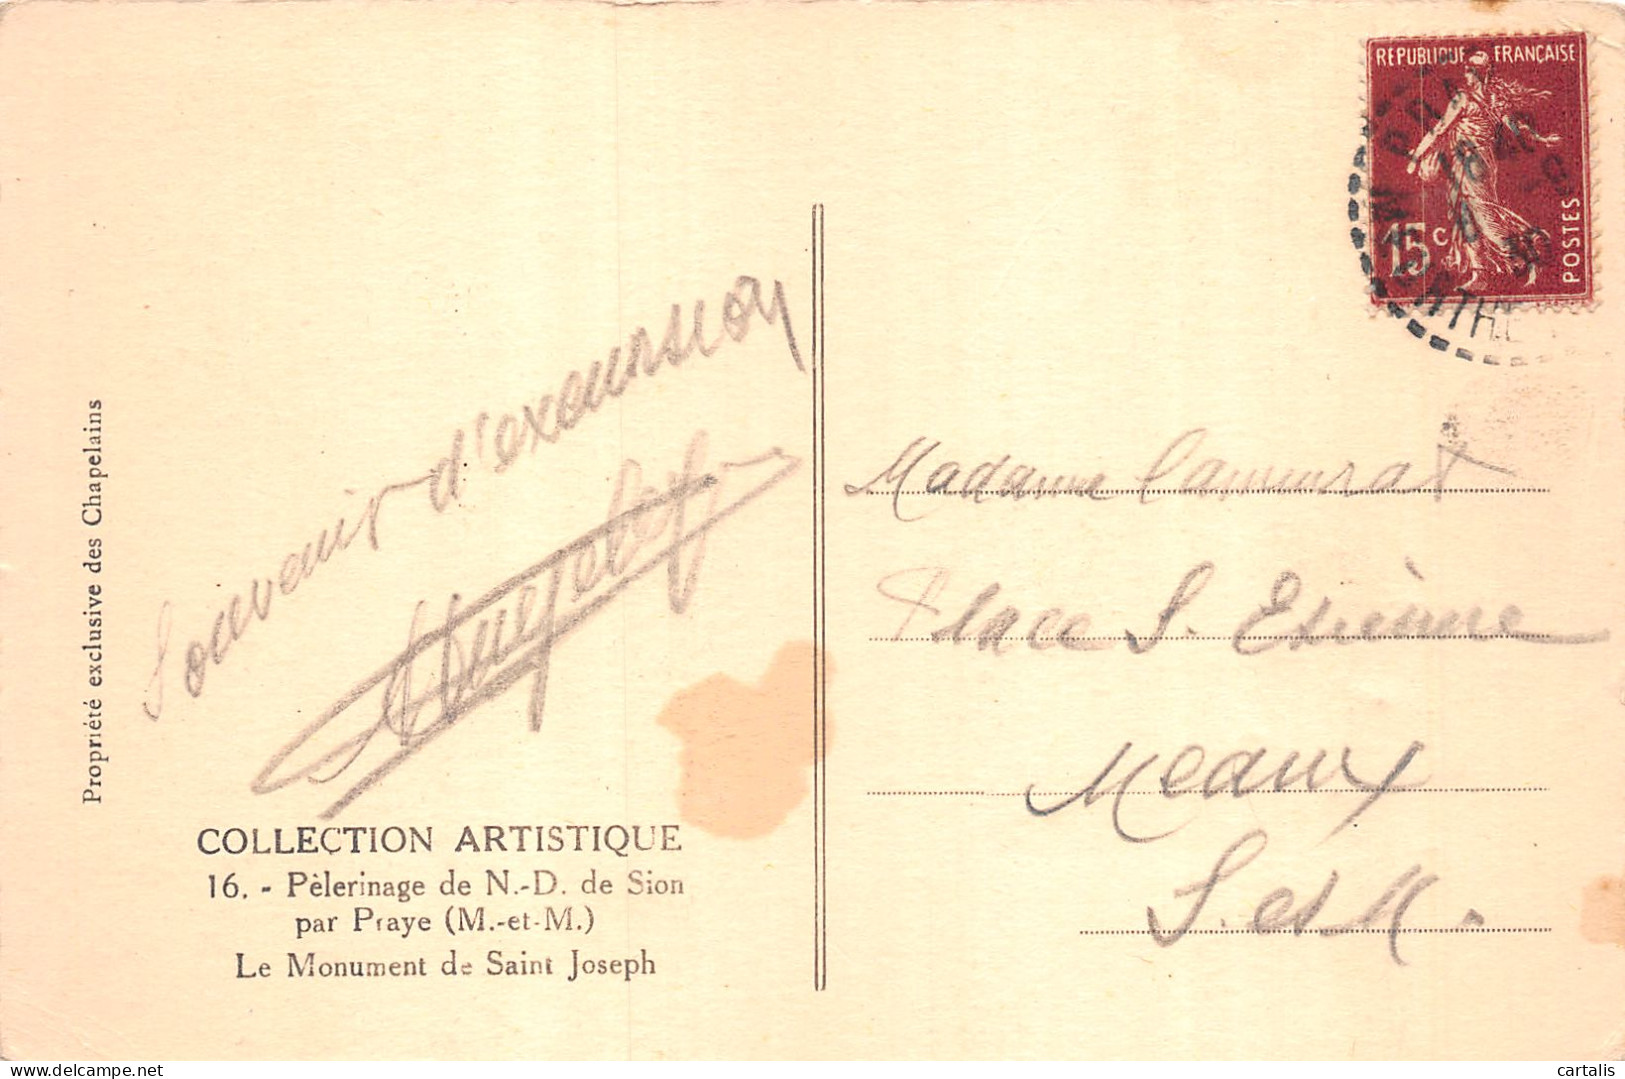 RÉPUBLIQUE FRANÇAISE
15 c
POSTES
18 40
30
Propriété exclusive des Chapelains
Souvenir d'excursion
Madame
Place S. Etienne
Meaux
S. et M.
COLLECTION ARTISTIQUE
16. - Pèlerinage de N.-D. de Sion
par Praye (M.-et-M.)
Le Monument de Saint Joseph
delcampe.net
cartalis